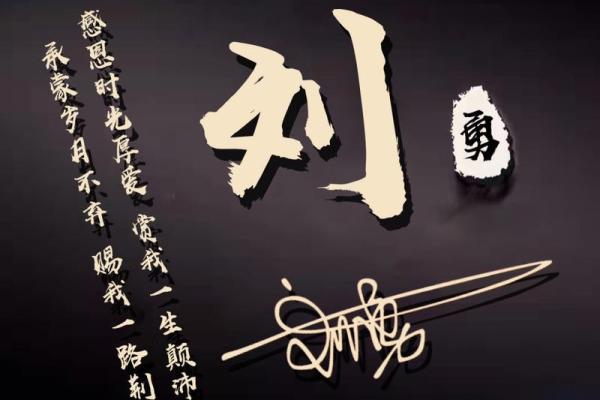 感恩时光厚爱 赏我一生颠沛
承蒙岁月不弃 赐我一路荆
刘
勇
刘勇